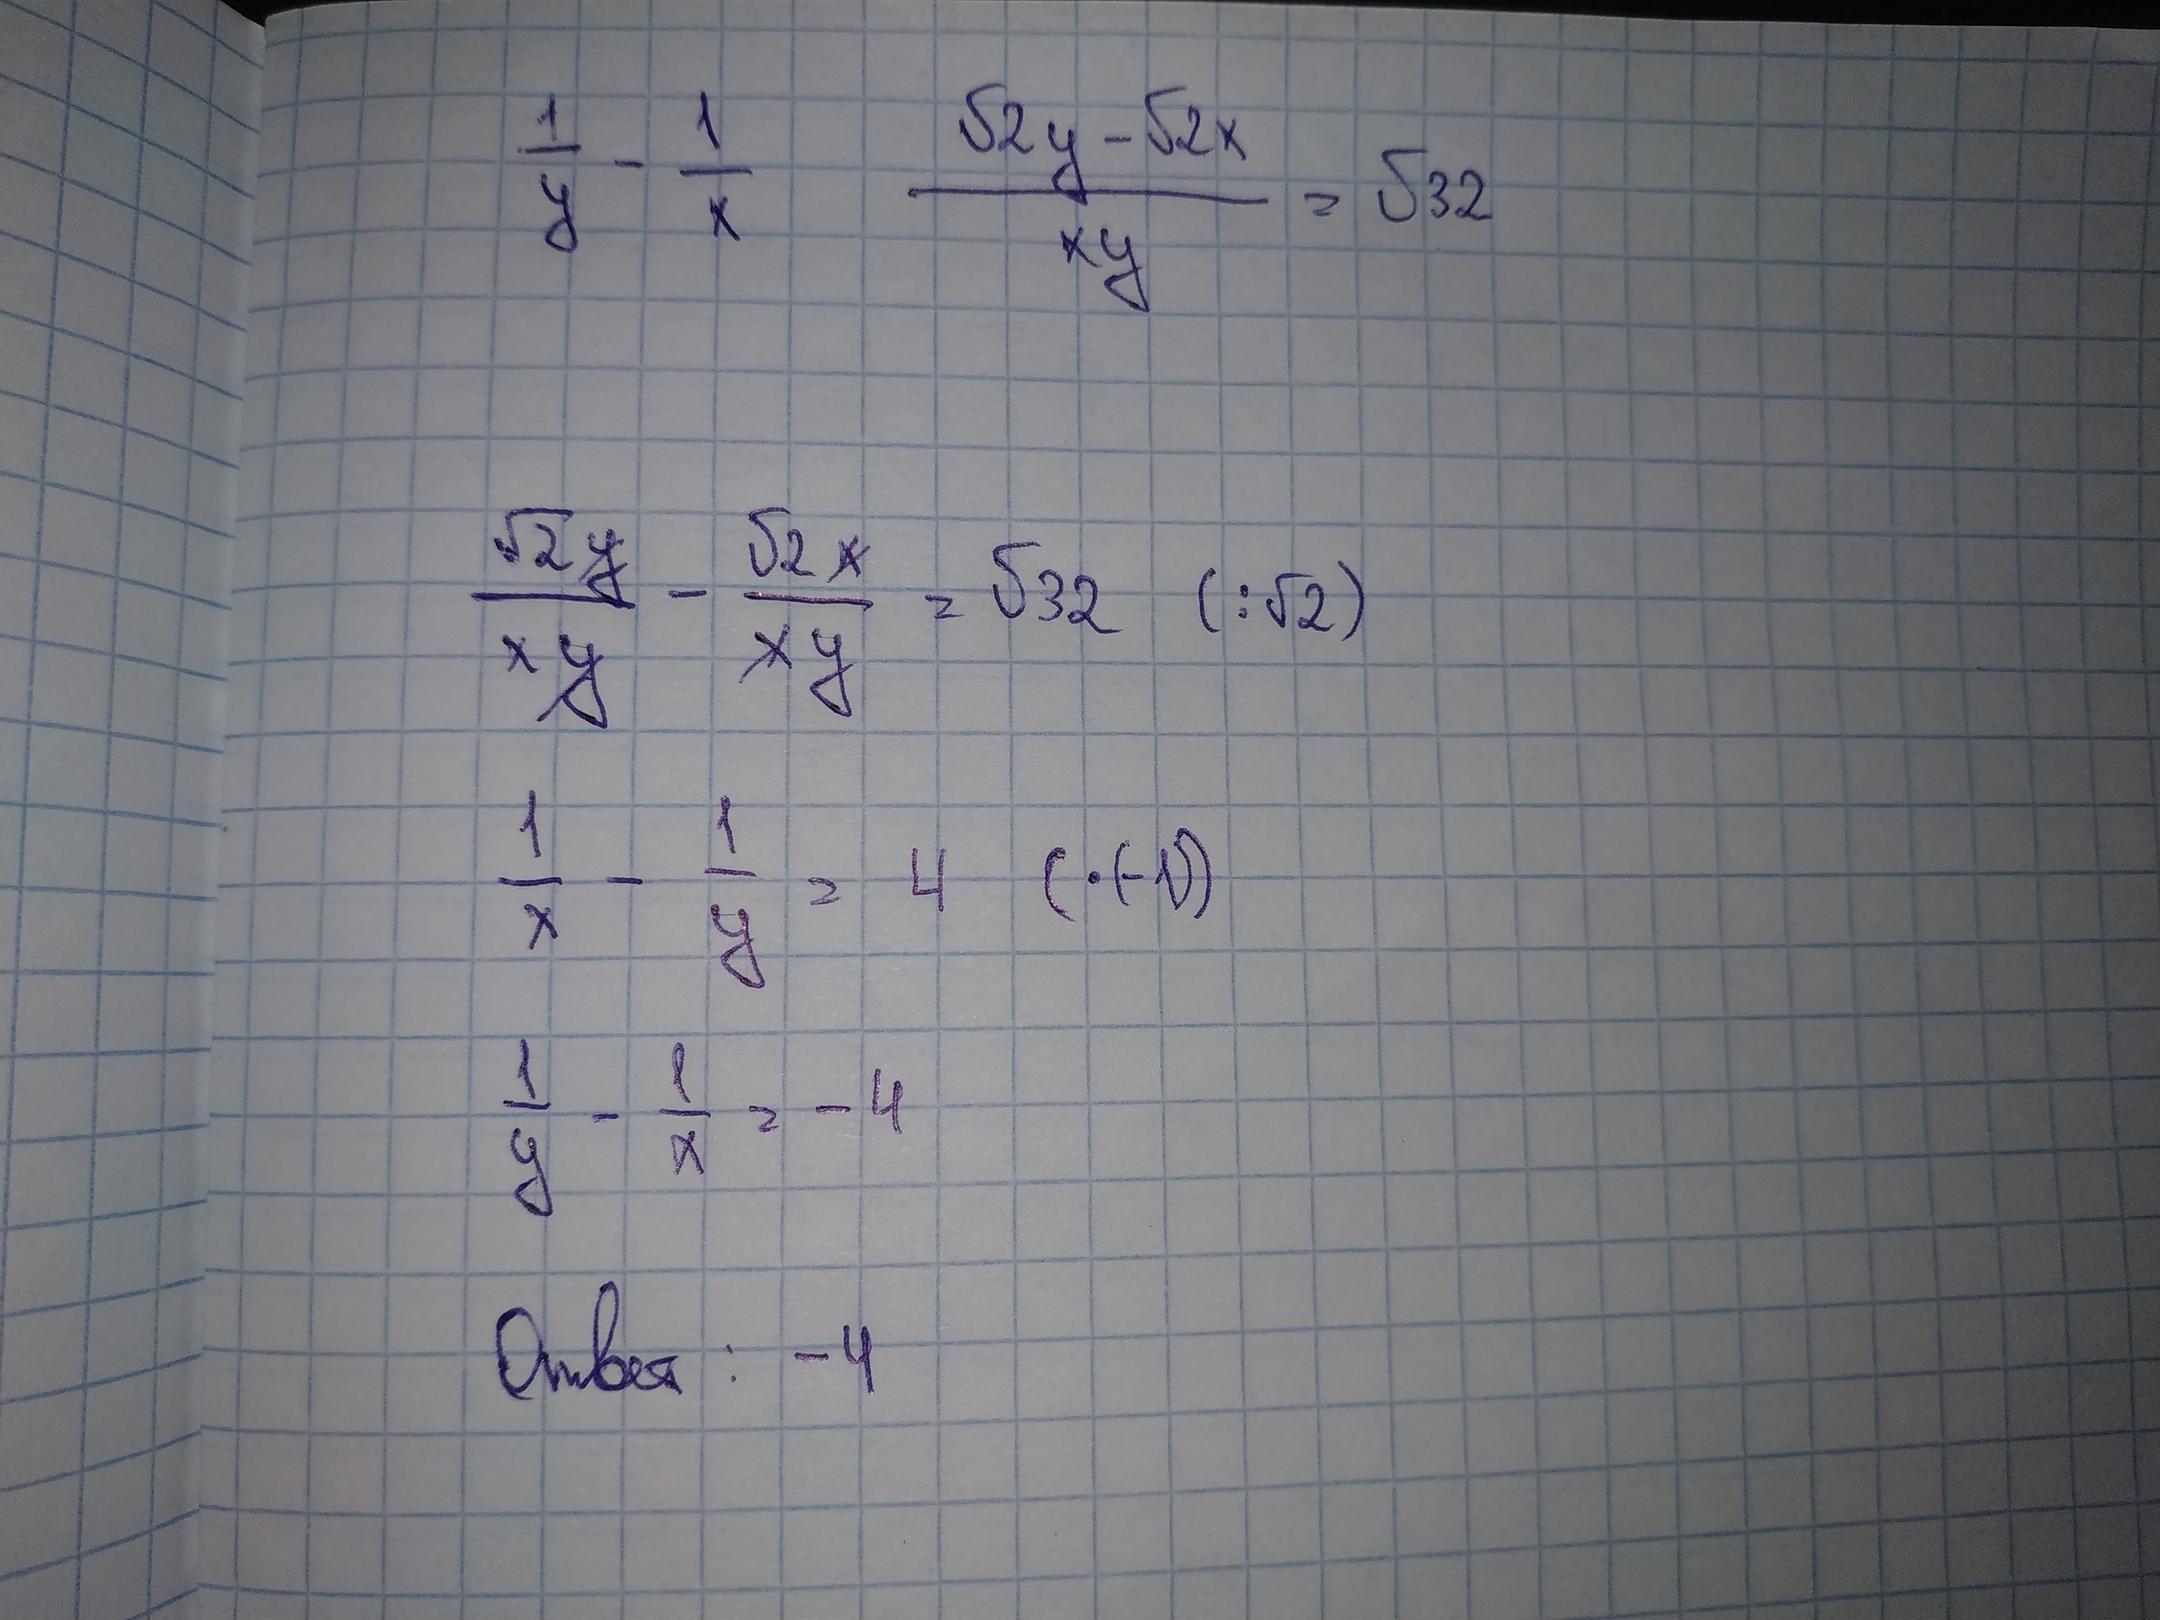 1/y - 1/x   (√2y - √2x)/xy = √32
√2y/xy - √2x/xy = √32 (:√2)
1/x - 1/y = 4 (·(-1))
1/y - 1/x = -4
Ответ: -4